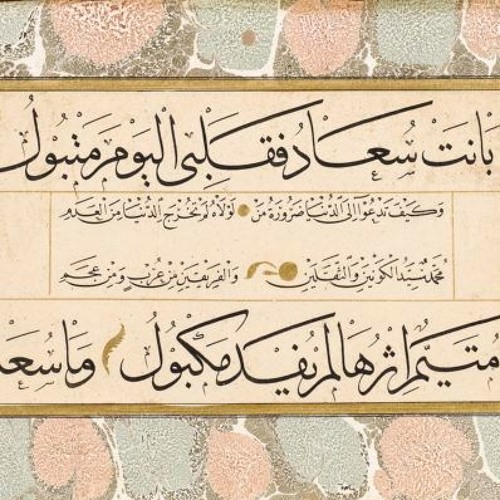 بَانَتْ سُعَادُ فَقَلْبِي الْيَوْمَ مَتْبُولُ
وَكَيْفَ تَدْعُوا اِلَى الدُّنْيَا ضَرُورَةُ مَنْ لَوْلَاهُ لَمْ تَخْرُجِ الدُّنْيَا مِنَ الْعَدَمِ
مُحَمَّدٌ سَيِّدُ الْكَوْنَيْنِ وَالثَّقَلَيْنِ وَالْفَرِيقَيْنِ مِنْ عُرْبٍ وَمِنْ عَجَمِ
مُتَيَّمٌ اِثْرَهَا لَمْ يُفْدَ مَكْبُولُ وَمَا سُعَا